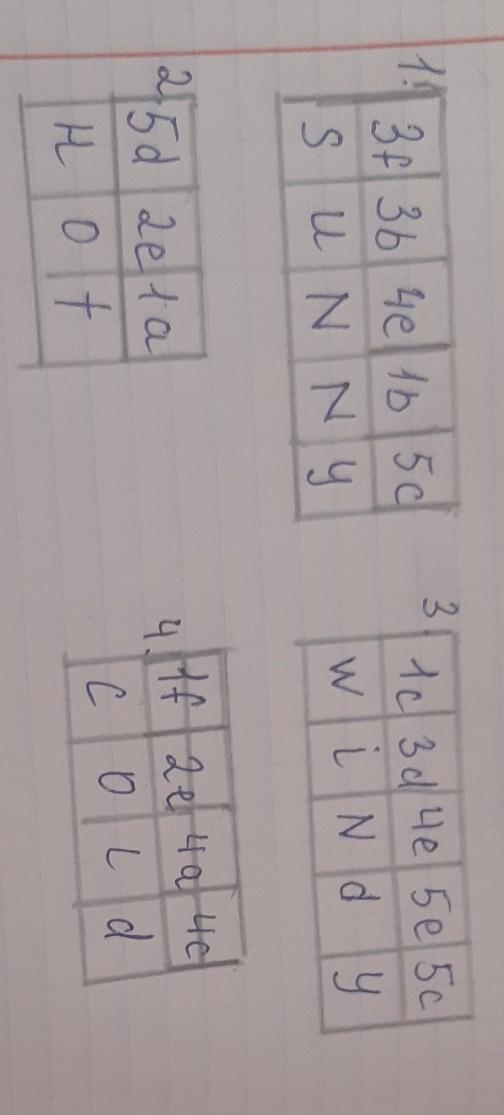 1.
3f 3b 4e 1b 5c
S U N N y
2.
5d 2e 1a
H O t
3.
1c 3d 4e 5e 5c
W i N d y
4.
1f 2e 4a 4c
C O L d